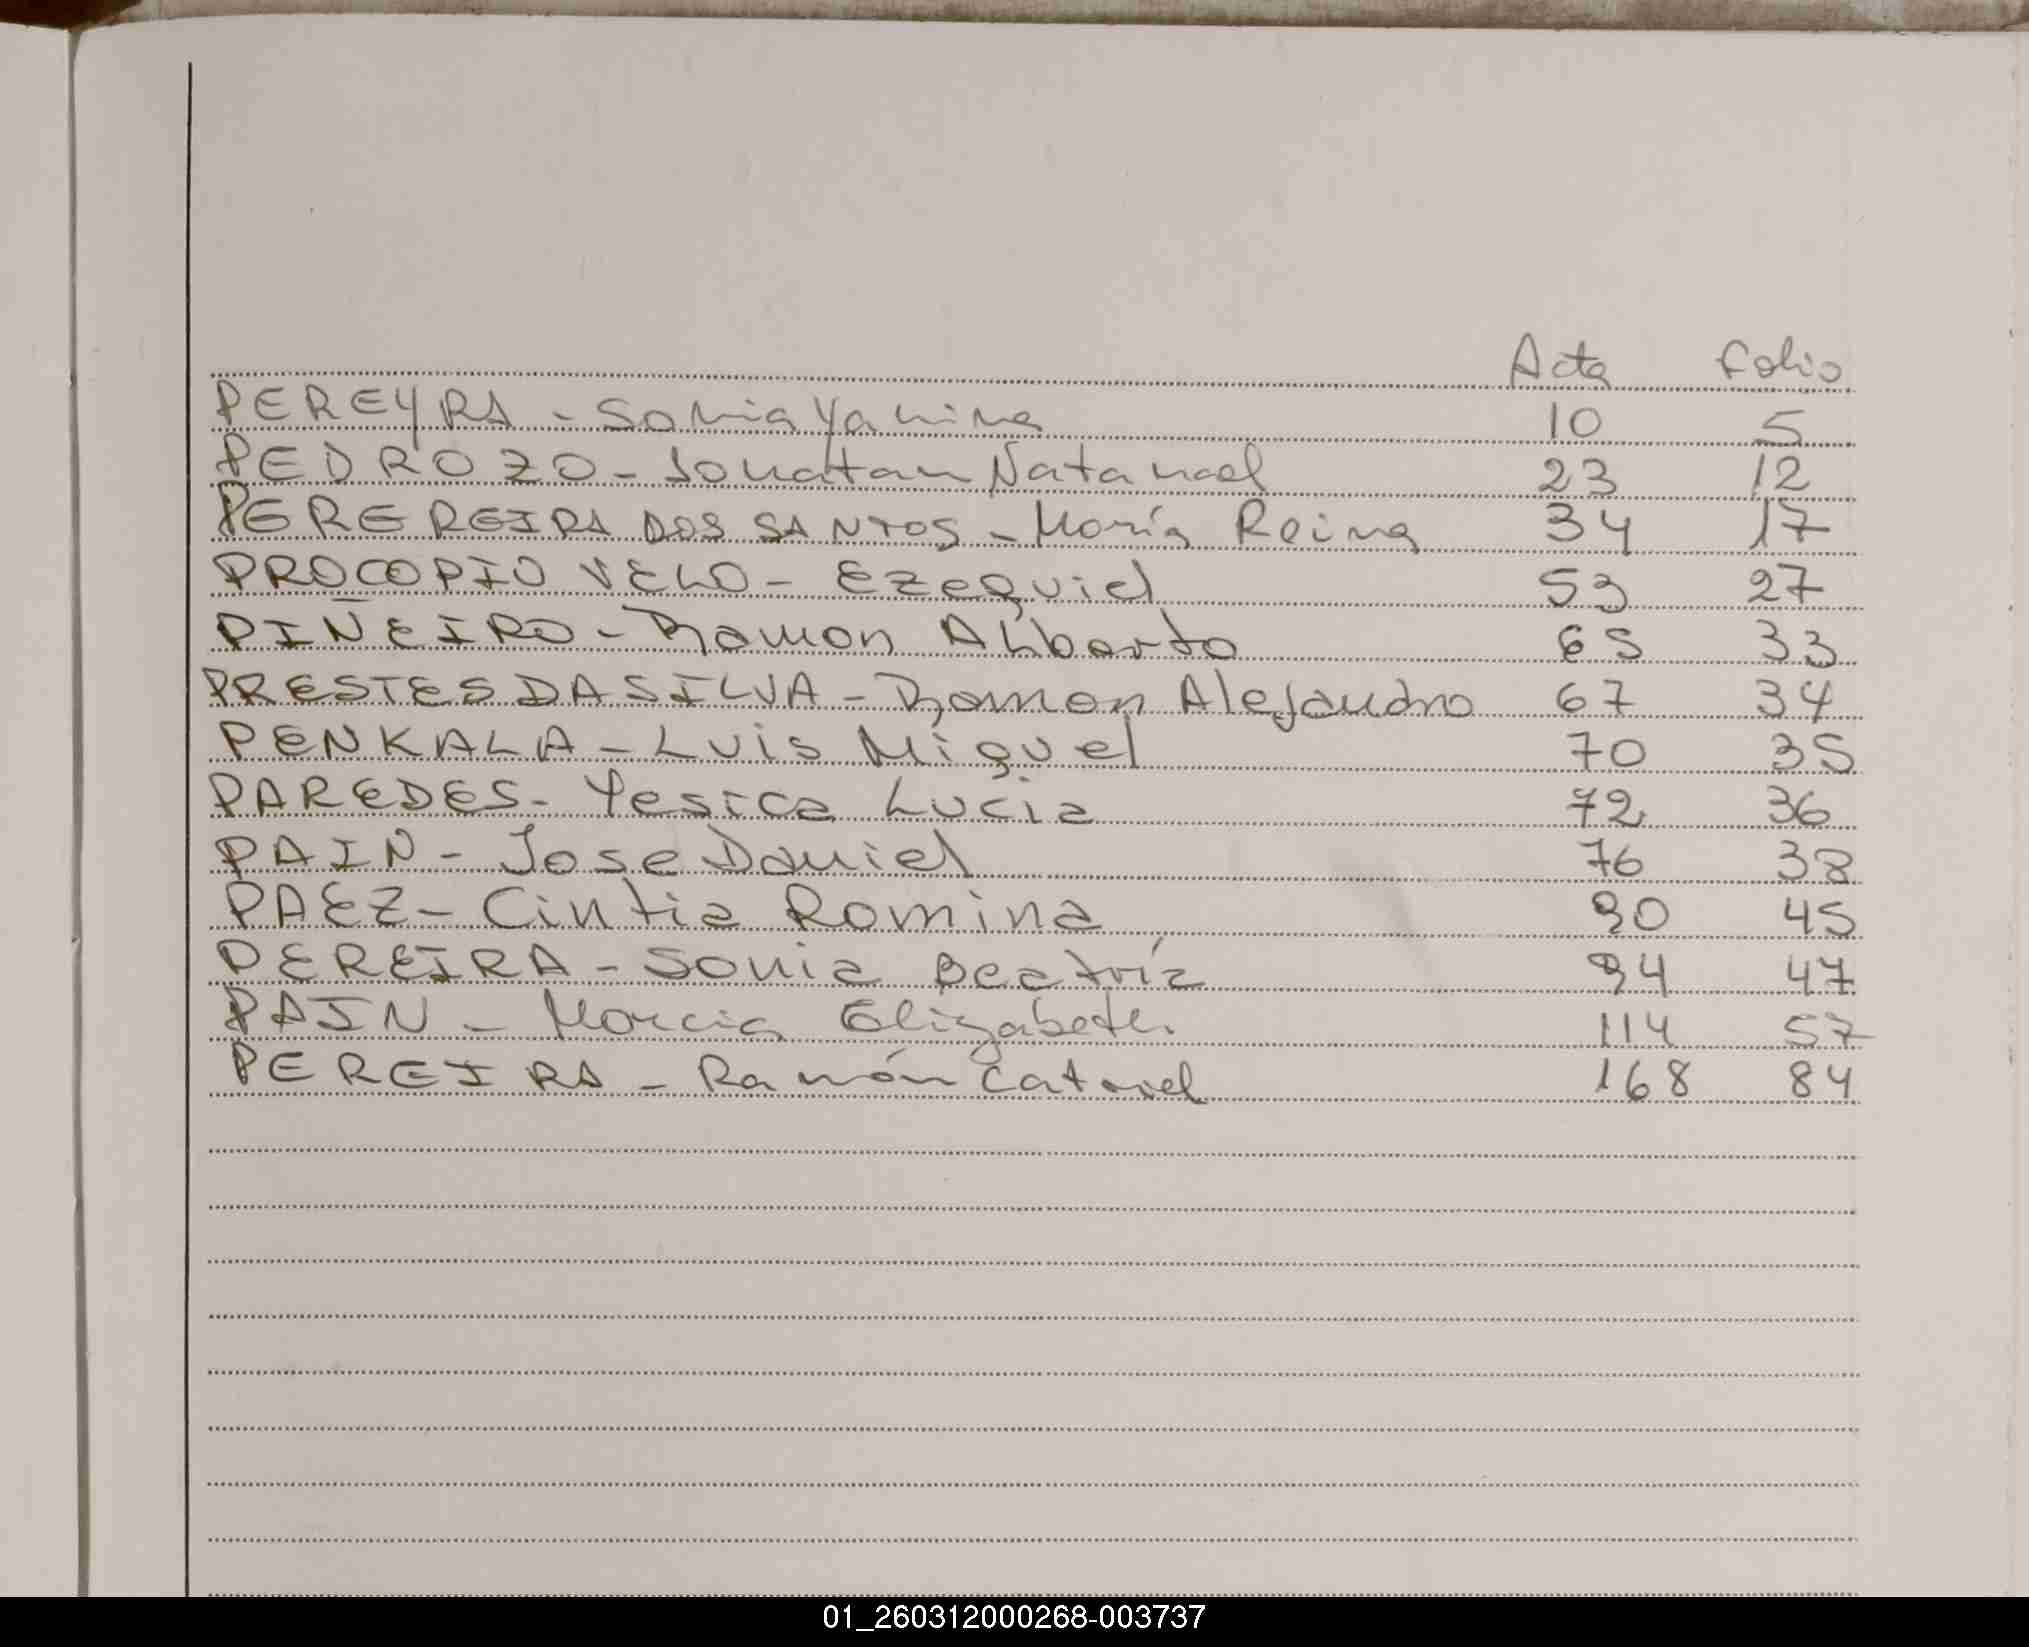 Acta Folio
PEREYRA - Sonia Yanina 10 5
PEDROZO - Jonatan Natanael 23 12
PEREREIRA DOS SANTOS - María Reina 34 17
PROCOPIO VELO - Ezequiel 53 27
PIÑEIRO - Ramon Alberto 65 33
PRESTES DA SILVA - Ramon Alejandro 67 34
PENKALA - Luis Miguel 70 35
PAREDES - Yesica Lucia 72 36
PAIN - Jose Daniel 76 38
PAEZ - Cintia Romina 90 45
PEREIRA - Sonia Beatríz 94 47
PAIN - Marcia Elizabeth. 114 57
PEREIRA - Ramón 168 84
01_260312000268-003737